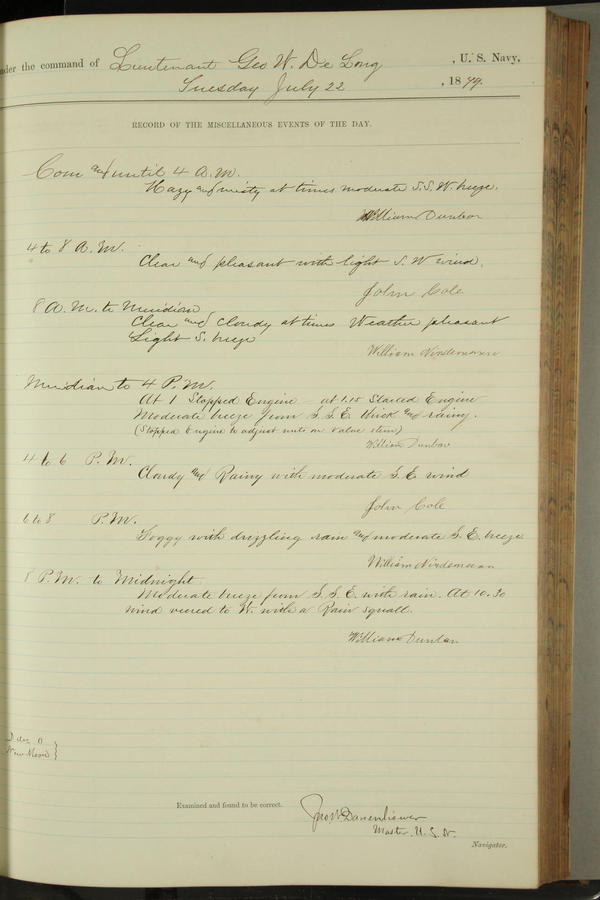 nder the command of Lieutenant Geo W. De Long, U. S. Navy,
Tuesday July 22, 1879.
RECORD OF THE MISCELLANEOUS EVENTS OF THE DAY.
Com and until 4 A.M.
Hazy and misty at times moderate S.S.W. breeze.
William Dunbar
4 to 8 A.M.
Clear and pleasant with light S.W wind.
John Cole
8 A.M. to Meridian
Clear and cloudy at times Weather pleasant
Light S. breeze
William Nindemann
Meridian to 4 P.M.
At 1 Stopped Engine - at 1.15 Started Engine
Moderate breeze from S.S.E. thick and rainy.
(Stopped Engine to adjust nuts on valve stem)
William Dunbar
4 to 6 P.M.
Cloudy and Rainy with moderate S.E wind
John Cole
6 to 8 P.M.
Foggy with drizzling rain and moderate S.E. breeze
William Nindemann
8 P.M. to Midnight
Moderate breeze from S.S.E. with rain. At 10.30
wind veered to W. with a Rain squall.
William Dunbar
New Moon }
Examined and found to be correct.
Jno W. Danenhower
Master, U.S.N.
Navigator.